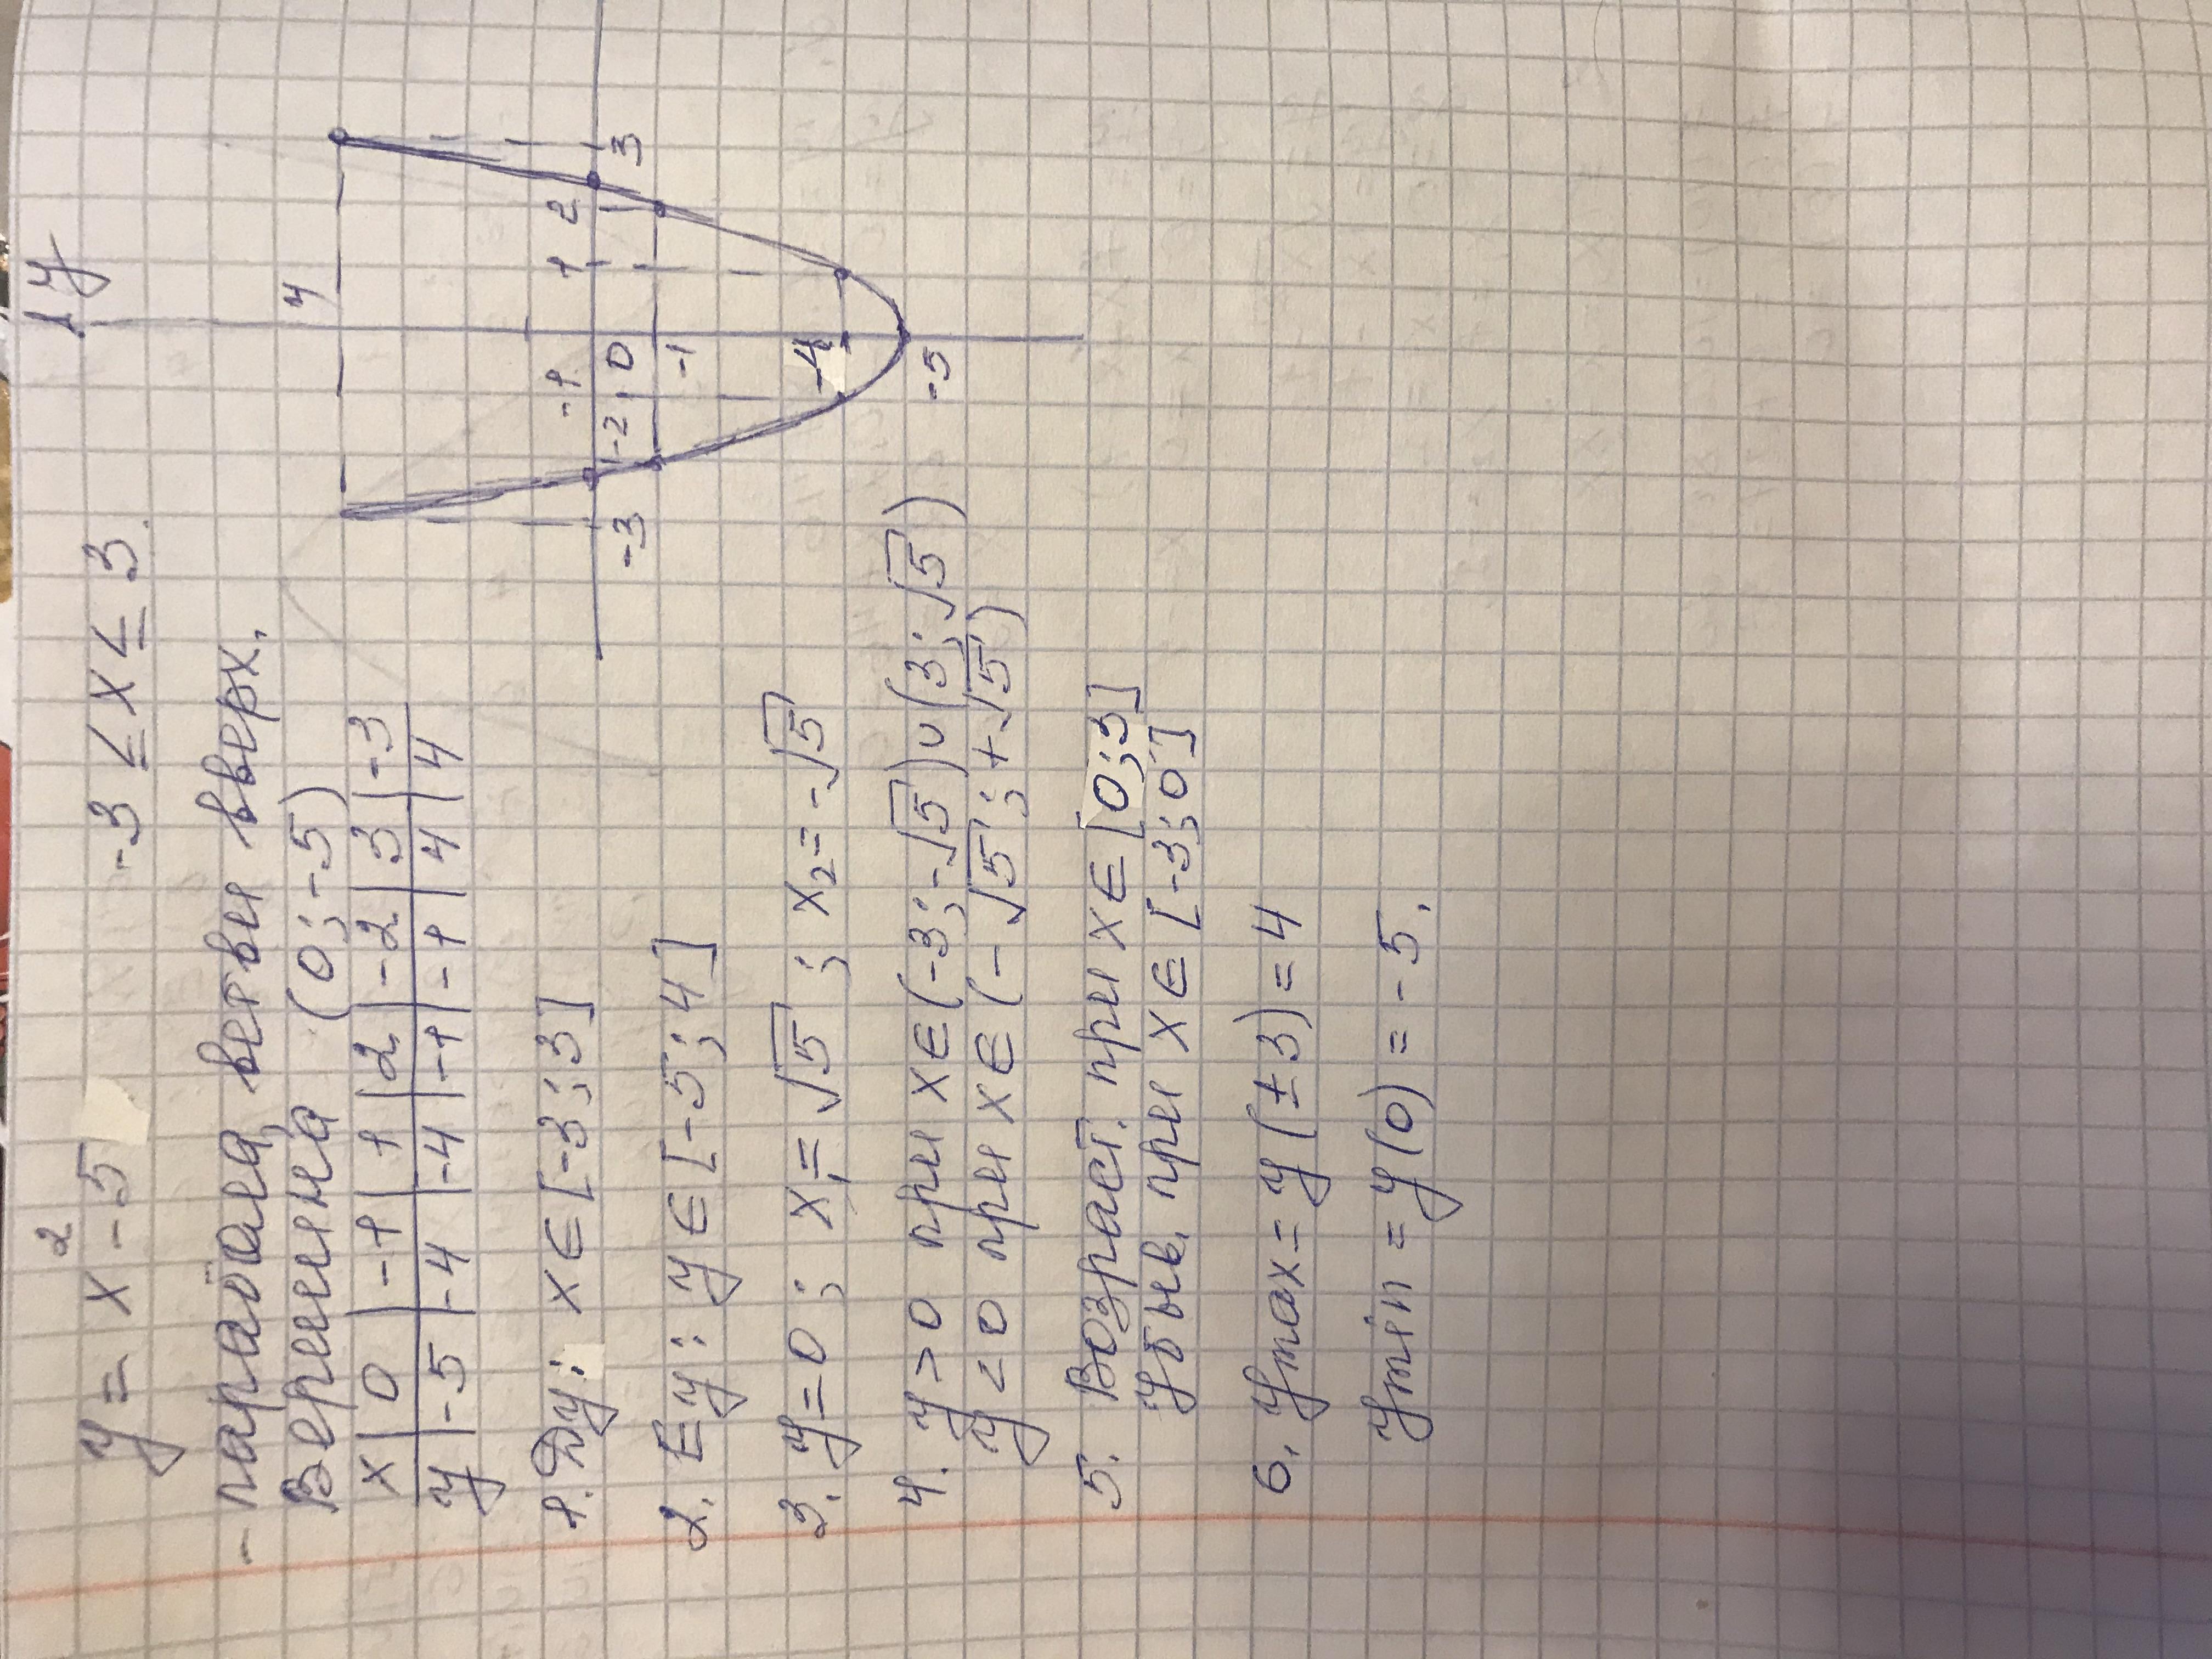 y = x² - 5     -3 ≤ x ≤ 3.
- парабола, ветви вверх.
Вершина (0; -5)
x | 0 | -1 | 1 | 2 | -2 | 3 | -3
y | -5 | -4 | -4 | -1 | -1 | 4 | 4
1. Dy: x ∈ [-3; 3]
2. Ey: y ∈ [-5; 4]
3. y = 0; x₁ = √5; x₂ = -√5
4. y > 0 при x ∈ (-3; -√5) ∪ (3; √5)
y < 0 при x ∈ (-√5; +√5)
5. Возраст. при x ∈ [0; 3]
убыв. при x ∈ [-3; 0]
6. ymax = y(±3) = 4
ymin = y(0) = -5.
y
4
-1 1 2
-3 -2 0 3
-1
-4
-5